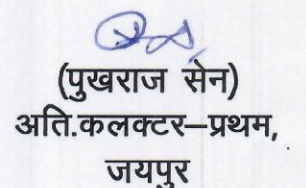 (पुखराज सेन)
अति.कलक्टर–प्रथम,
जयपुर